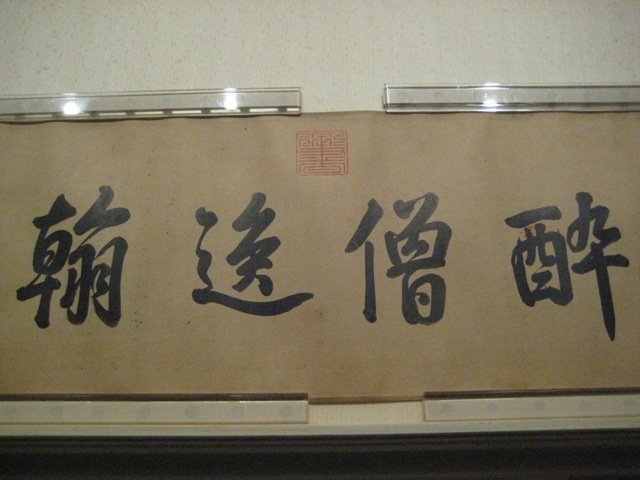 醉僧逸翰